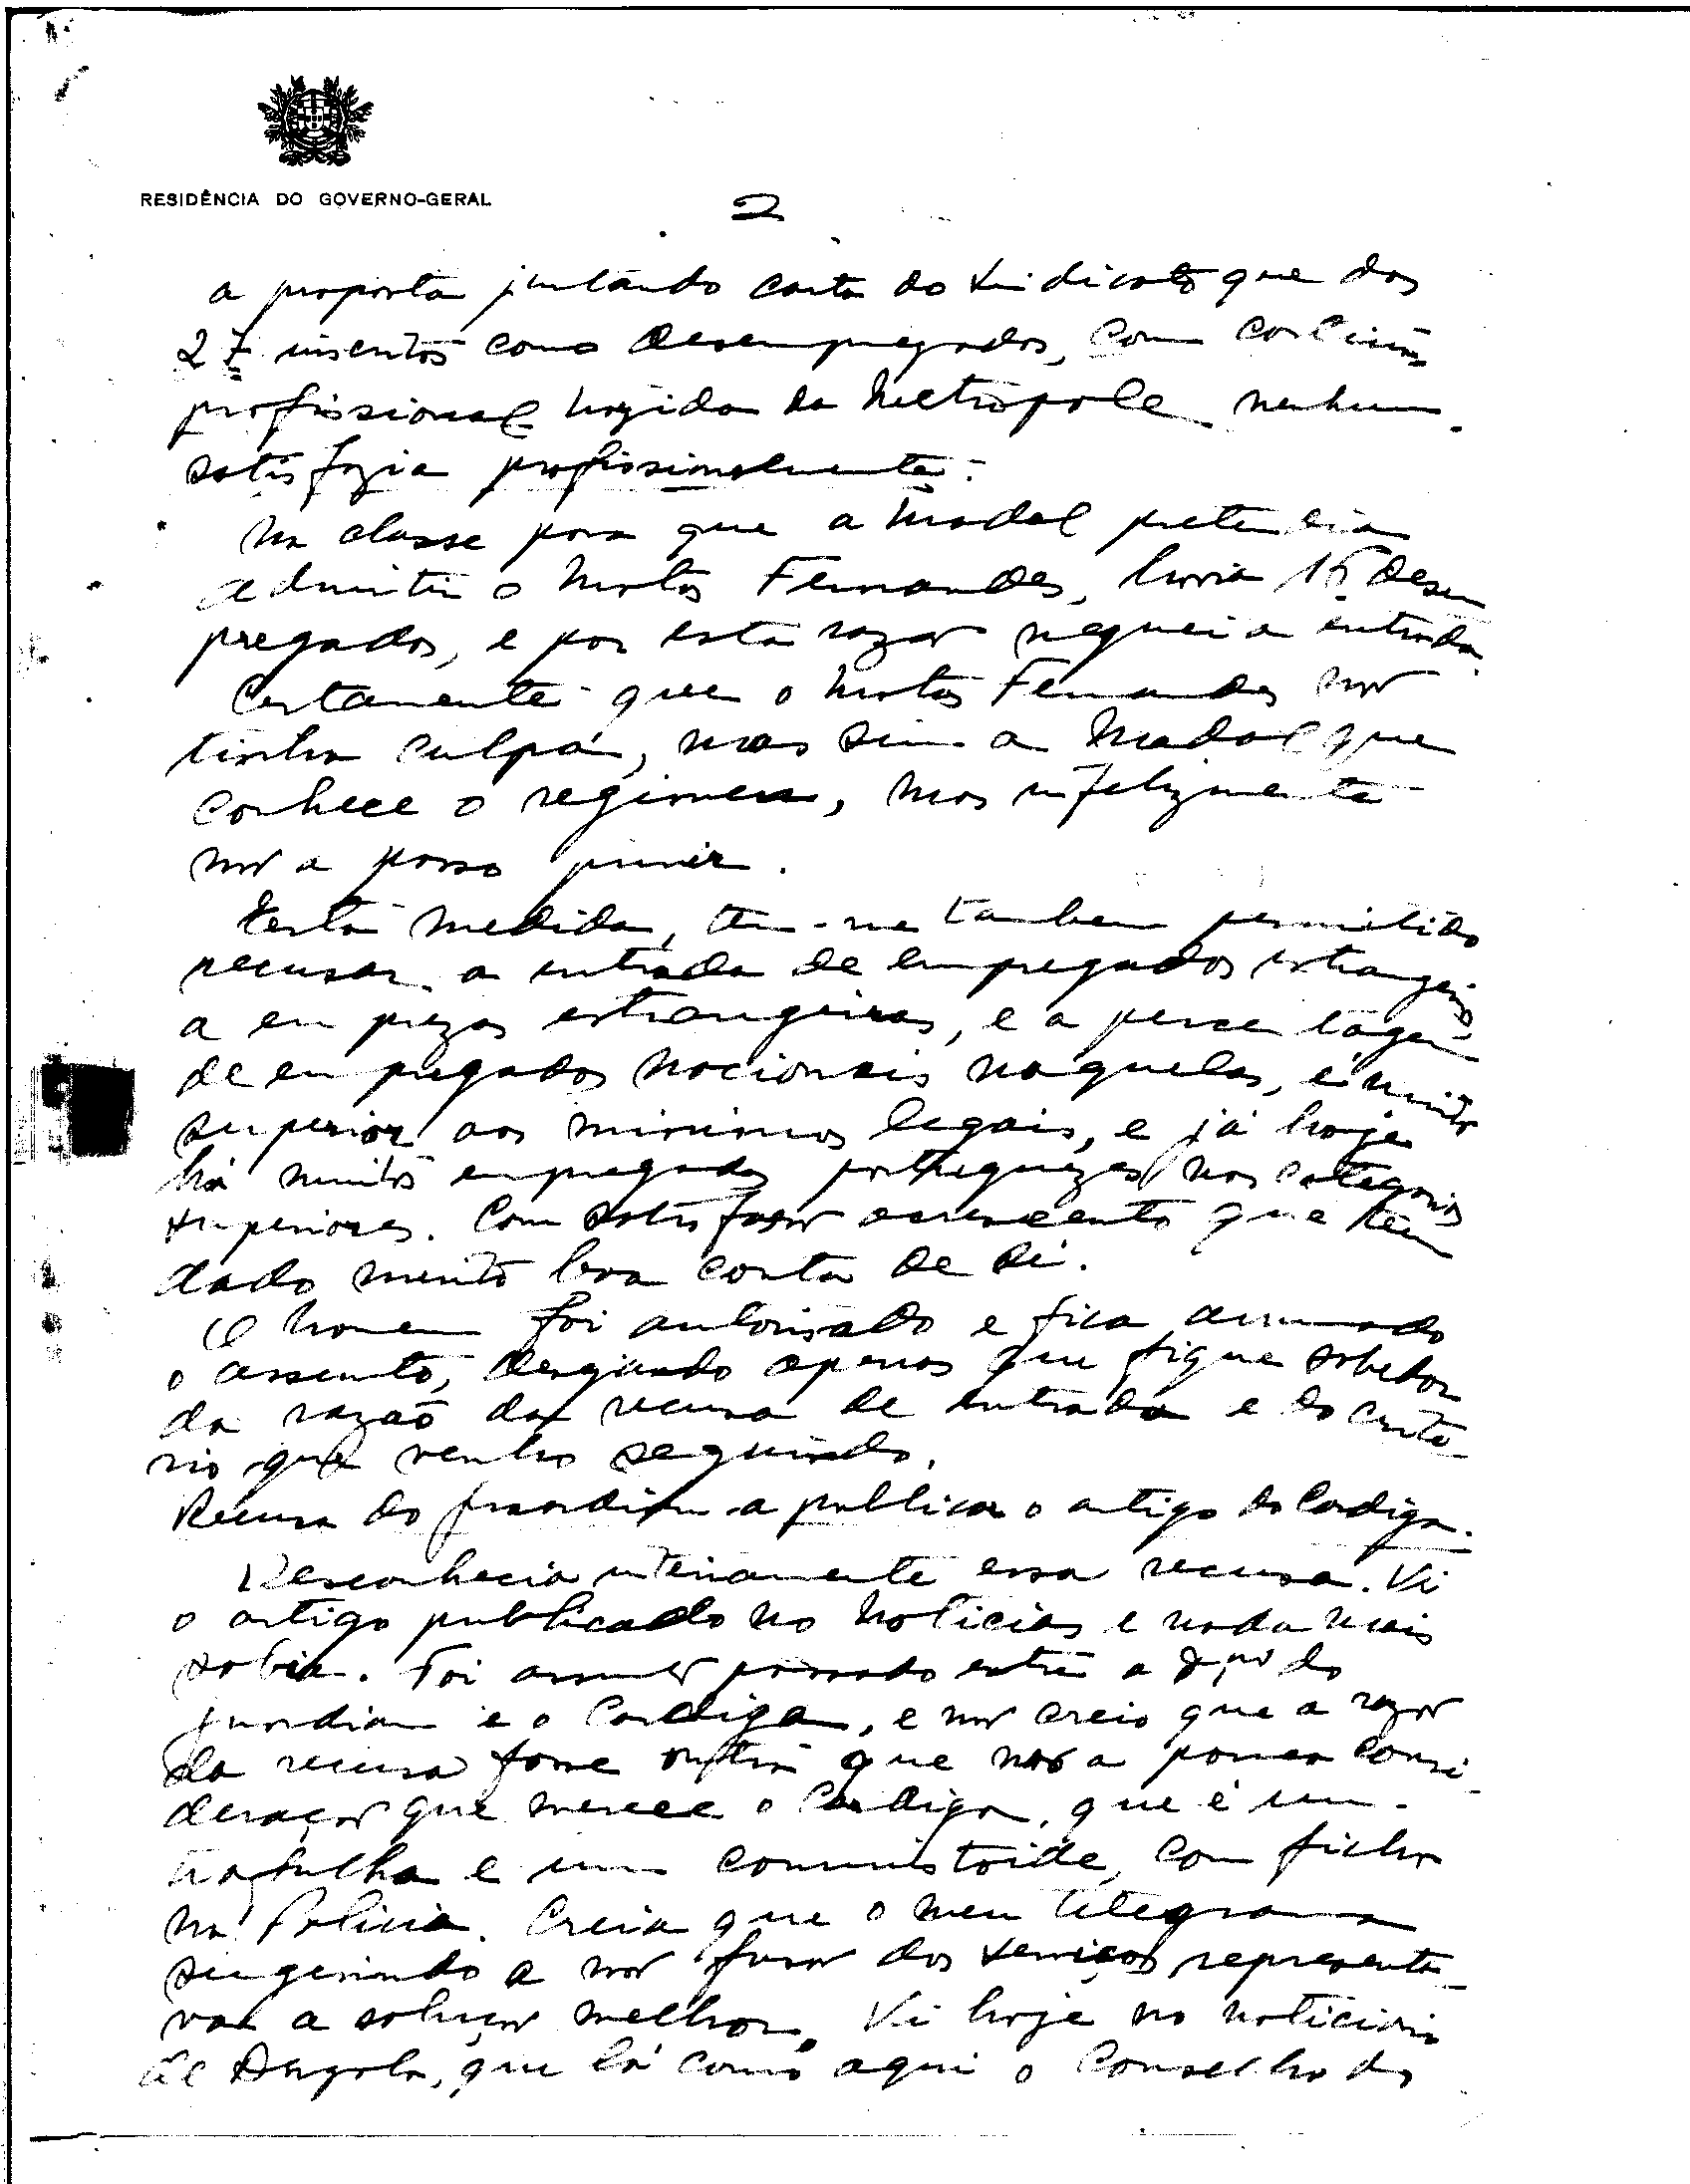 RESIDÊNCIA DO GOVERNO-GERAL
2
a proposta juntando carta do Sindicato que dos
27 inscritos como desempregados, com
profissional da Metropole nenhum
satisfazia profissionalmente.
Na classe para que a Madal pretendia
admitir o Matos Fernandes, havia 16 desem
pregados, e por esta razão neguei a entrada.
Certamente que o Matos Fernandes não
tinha culpa, mas sim a Madal que
conhece o regimen, mas infelizmente
não a posso punir.
Esta medida, tem-me tambem permitido
recusar a entrada de empregados estrangeiros
a emprezas estrangeiras, e a percentagem
de empregados nacionais naquelas, é muito
superior aos minimos legais, e já hoje
há muitos empregados portuguezes nas categorias
superiores. Com satisfação acrescento que têm
dado muito boa conta de si.
O homem foi autorisado e fica arrumado
o assunto, desejando apenas que fique sabedor
da razão da recusa de entrada e do crite-
rio que venho seguindo.
Recusa do Guardian a publicar o artigo do Cardiga.
Desconhecia inteiramente essa recusa. Vi
o artigo publicado no Noticias e nada mais
sabia. Foi assunto passado entre a do
Guardian e o Cardiga, e não creio que a razão
da recusa fosse outra que não a pouca consi-
deração que merece o Cardiga, que é um
trafulha e um comunistoide, com ficha
na Policia. Creia que o meu telegrama
sugerindo a não dos serviços representa-
va a solução melhor. Vi hoje no noticiario
de Angola, que lá como aqui o Conselho dos